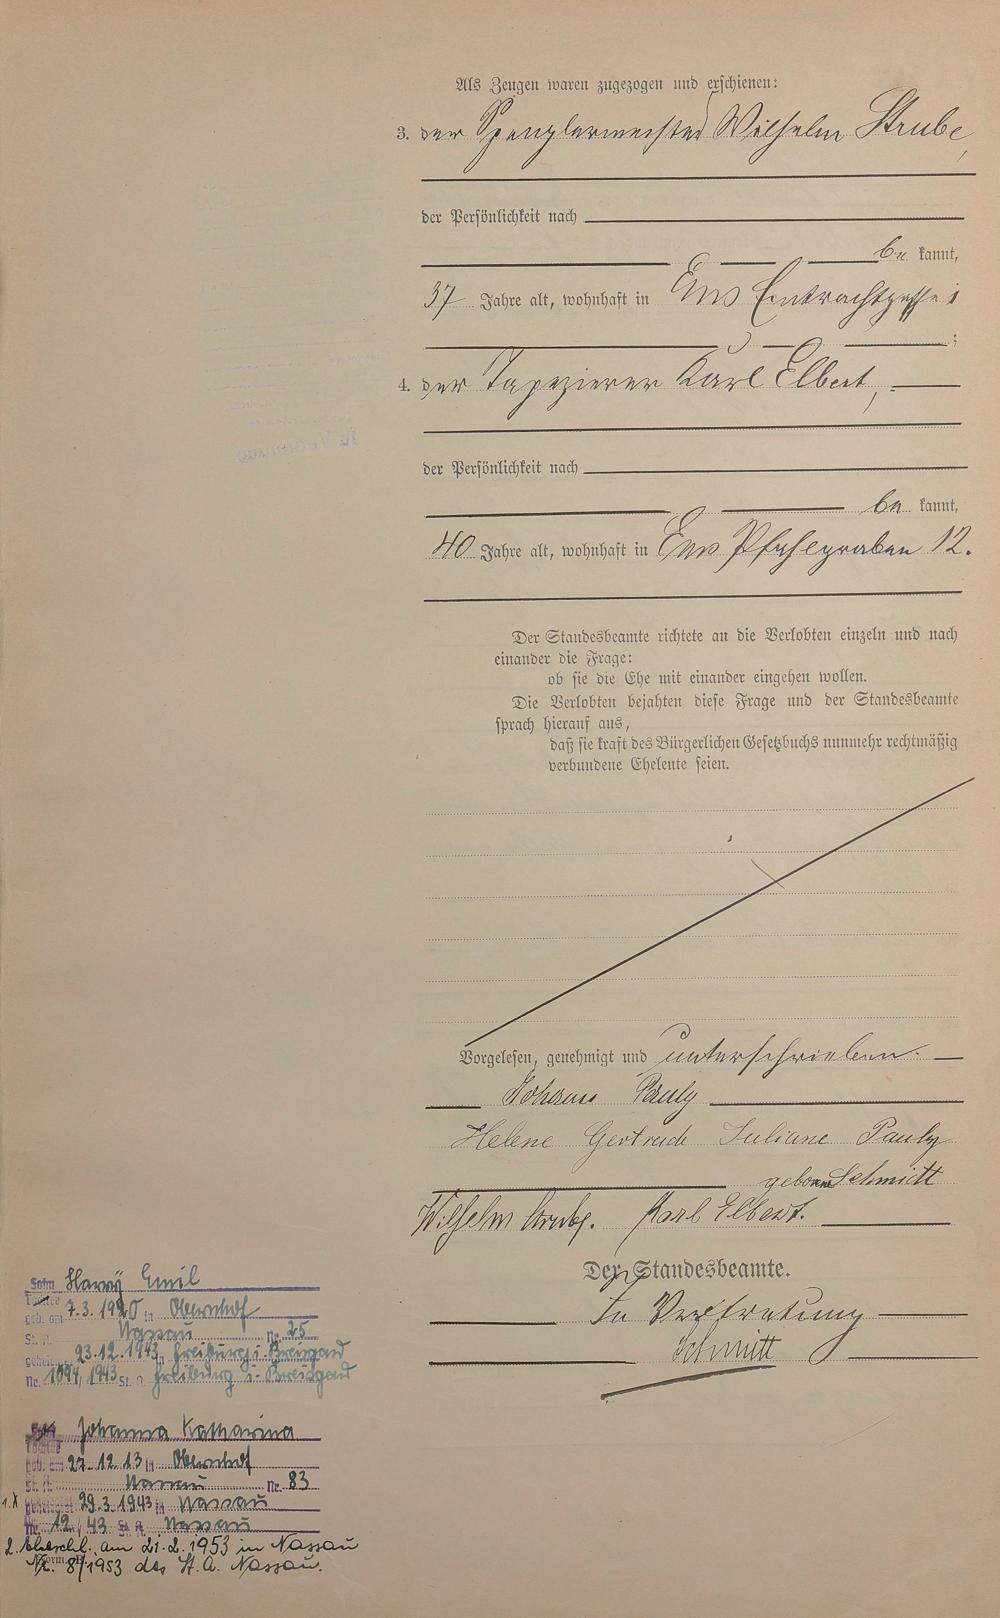 Als Zeugen waren zugezogen und erschienen:
3. der Spenglermeister Wilhelm Strube,
der Persönlichkeit nach
be kannt,
37 Jahre alt, wohnhaft in Ems Eintrachtgasse 1
;
4. der Tapezierer Karl Elbert,
der Persönlichkeit nach
be kannt,
40 Jahre alt, wohnhaft in Ems Pfahlgraben 12.
Der Standesbeamte richtete an die Verlobten einzeln und nach
einander die Frage:
ob sie die Ehe mit einander eingehen wollen.
Die Verlobten bejahten diese Frage und der Standesbeamte
sprach hierauf aus,
daß sie kraft des Bürgerlichen Gesetzbuchs nunmehr rechtmäßig
verbundene Eheleute seien.
Vorgelesen, genehmigt und unterschrieben.
Johann Pauly
Helene Gertrude Juliane Pauly
geborne Schmitt
Wilhelm Strube. Karl Elbert.
Der Standesbeamte.
In Vertretung
Schmitt
Sohn Harry Emil
Tochter
geb. am 7.3.1920 in Obernhof
St. A. Nassau Nr. 25
geheiratet 23.12.1943 in Freiburg i. Breisgau
Nr. 1094/1943 St. A. Freiburg i. Breisgau
Sohn Johanna Katharina
Tochter
geb. am 27.12.13 in Obernhof
St. A. Nassau Nr. 83
1. X geheiratet 29.3.1943 in Nassau
Nr. 12/43 St. A. Nassau
2. Eheschl. am 21.2.1953 in Nassau
Nr. 8/1953 des St. A. Nassau.